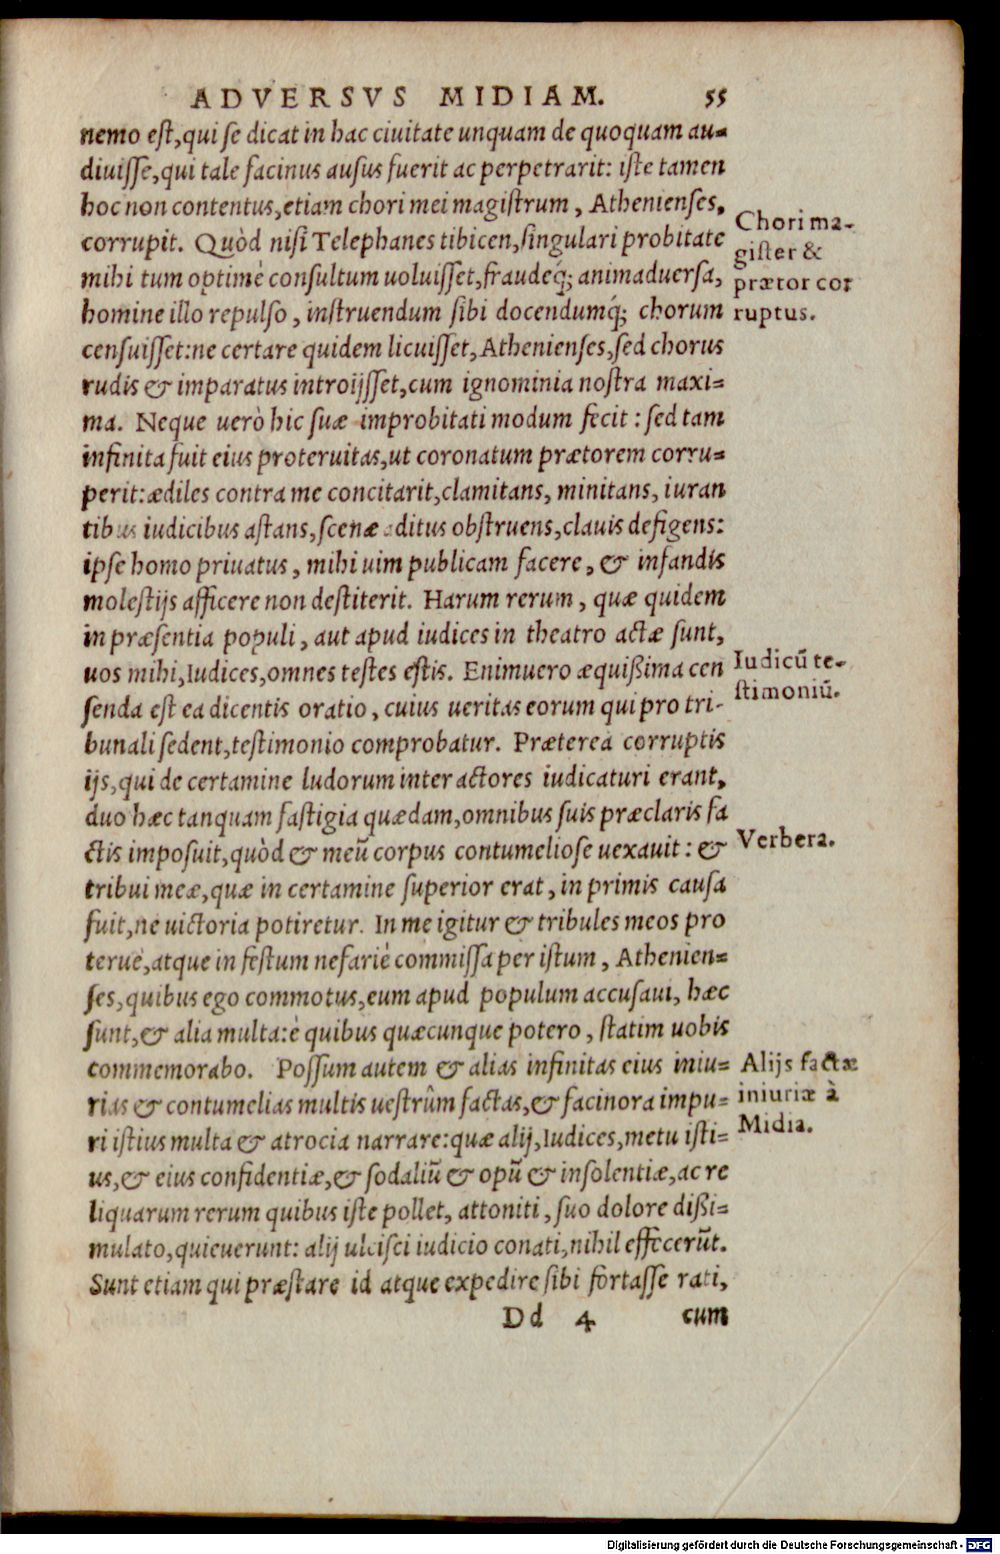 ADVERSVS MIDIAM. 55
nemo est, qui se dicat in hac ciuitate unquam de quoquam au-
diuisse, qui tale facinus ausus fuerit ac perpetrarit: iste tamen
hoc non contentus, etiam chori mei magistrum, Athenienses,
corrupit. Quòd nisi Telephanes tibicen, singulari probitate
mihi tum optimè consultum uoluisset, fraudeq́; animaduersa,
homine illo repulso, instruendum sibi docendumq́; chorum
censuisset: ne certare quidem licuisset, Athenienses, sed chorus
rudis & imparatus introijsset, cum ignominia nostra maxi-
ma. Neque uerò hic suæ improbitati modum fecit: sed tam
infinita fuit eius proteruitas, ut coronatum prætorem corru-
perit: ædiles contra me concitarit, clamitans, minitans, iuran
tibus iudicibus astans, scenæ aditus obstruens, clauis defigens:
ipse homo priuatus, mihi uim publicam facere, & infandis
molestijs afficere non destiterit. Harum rerum, quæ quidem
in præsentia populi, aut apud iudices in theatro actæ sunt,
uos mihi, Iudices, omnes testes estis. Enimuero æquißima cen
senda est ea dicentis oratio, cuius ueritas eorum qui pro tri-
bunali sedent, testimonio comprobatur. Præterea corruptis
ijs, qui de certamine ludorum inter actores iudicaturi erant,
duo hæc tanquam fastigia quædam, omnibus suis præclaris fa
ctis imposuit, quòd & meũ corpus contumeliose uexauit: &
tribui meæ, quæ in certamine superior erat, in primis causa
fuit, ne uictoria potiretur. In me igitur & tribules meos pro
teruè, atque in festum nefariè commissa per istum, Athenien-
ses, quibus ego commotus, eum apud populum accusaui, hæc
sunt, & alia multa: è quibus quæcunque potero, statim uobis
commemorabo. Possum autem & alias infinitas eius iniu-
rias & contumelias multis uestrûm factas, & facinora impu-
ri istius multa & atrocia narrare: quæ alij, Iudices, metu isti-
us, & eius confidentiæ, & sodaliũ & opũ & insolentiæ, ac re
liquarum rerum quibus iste pollet, attoniti, suo dolore dißi-
mulato, quieuerunt: alij ulcisci iudicio conati, nihil effecerũt.
Sunt etiam qui præstare id atque expedire sibi fortasse rati,
Dd 4 cum
Chori ma-
gister &
prætor cor
ruptus.
Iudicũ te-
stimoniũ.
Verbera.
Alijs factæ
iniuriæ à
Midia.
Digitalisierung gefördert durch die Deutsche Forschungsgemeinschaft - DFG